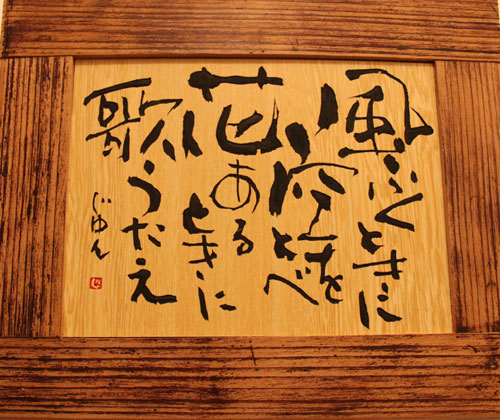 風ふくときに
空をとべ
花あるときに
歌うたえ
じゅん